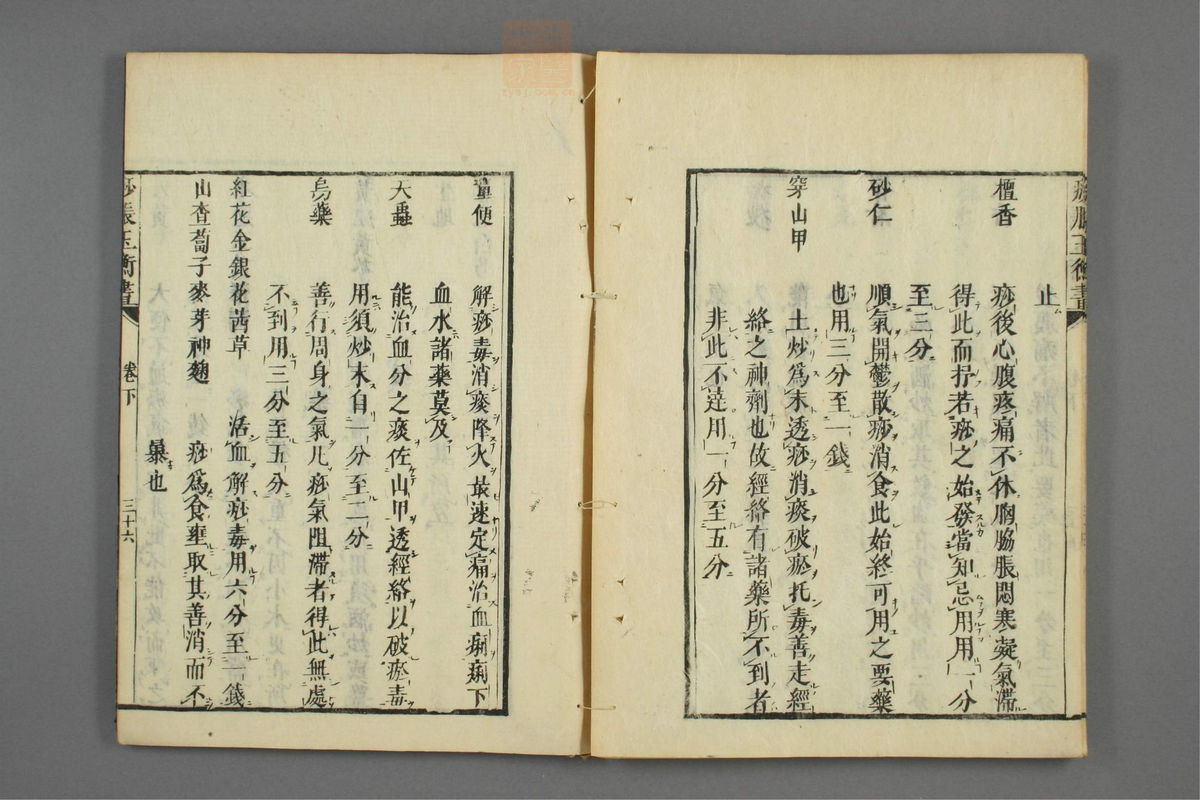 痧脹玉衡書
止
檀香
痧後心腹疼痛不休胸脇脹悶寒凝氣滯
得此而抒若痧之始發當知忌用用一分
至三分
砂仁
順氣開鬱散痧消食此始終可用之要藥
也用三分至一錢
穿山甲
土炒爲末透痧消痰破瘀托毒善走經
絡之神劑也故經絡有諸藥所不到者
非此不達用一分至五分
童便
解痧毒消痰降火最速定痛治血痢痢下
血水諸藥莫及
大黽
能治血分之痰佐山甲透經絡以破瘀毒
用須炒末自一分至二分
烏藥
善行周身之氣凡痧氣阻滯者得此無處
不到用三分至五分
紅花金銀花茜草
活血解痧毒用六分至一錢
山查蔔子麥芽神麯
痧爲食壅取其善消而不
暴也
痧脹玉衡書
卷下
三十六